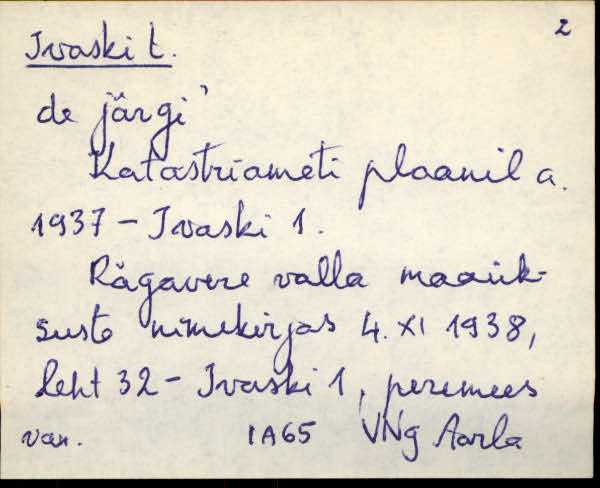 2
Ivaski t.
de järgi"
Katastriameti plaanil a.
1937 - Ivaski 1.
Rägavere valla maaük-
suste nimekirjas 4. XI 1938,
leht 32 - Ivaski 1, peremees
van. IA65 VNg Aarla